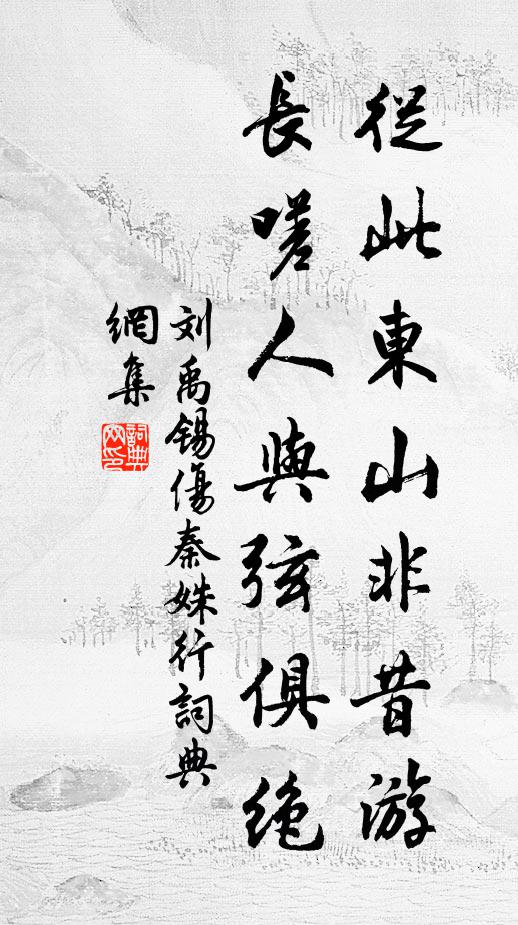 從此東山非昔游
長嗟人與弦俱絶
刘禹锡傷秦姝行詞典
網集
詞典
网